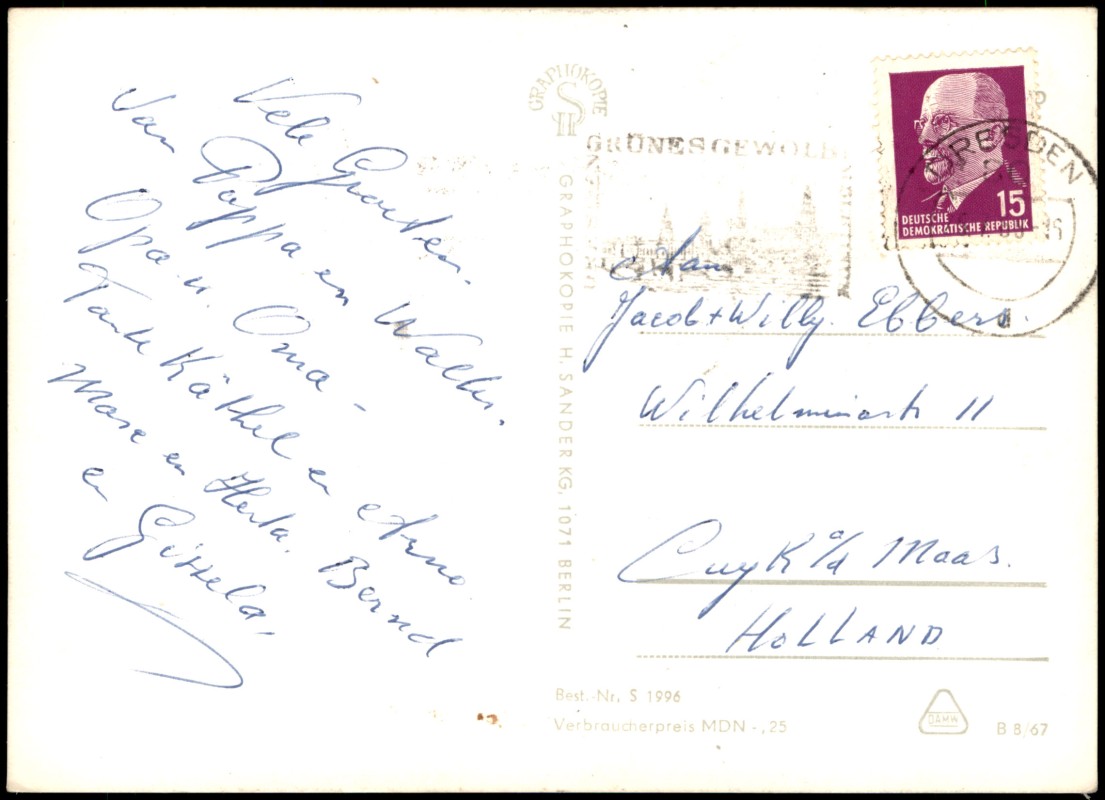 Vele Groeten.
Van Pappa en Walter.
Opa u. Oma -
Tante Käthel en Arno.
Maxe en Herta. Bernd
en Gissela.
GRAPHOKOPIE
H S
GRAPHOKOPIE H. SANDER KG, 1071 BERLIN
GRÜNES GEWÖLB
DRESDEN
15
DEUTSCHE
DEMOKRATISCHE REPUBLIK
Aan
Jacob + Willy. Ebbers.
Wilhelminastr 11
Cuyk a/d Maas.
HOLLAND
Best.-Nr. S 1996
Verbraucherpreis MDN -,25
DAMW
B 8/67